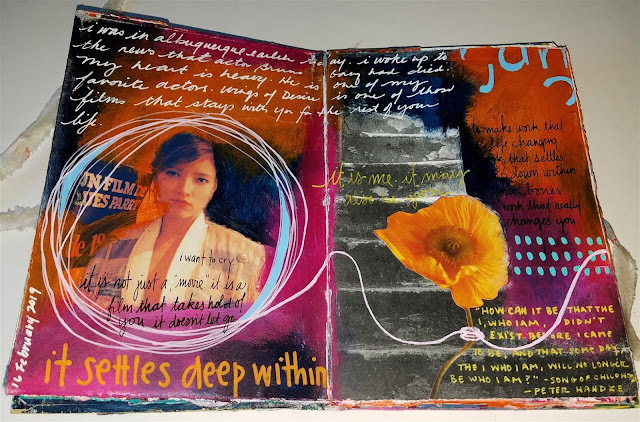 i was in albuquerque earlier today. i woke up to
the news that actor Bruno Ganz had died.
my heart is heavy. He is one of my
favorite actors. Wings of Desire is one of those
films that stays with you for the rest of your
life.
UN FILM
i want to cry
it is not just a "movie" it is a
film that takes hold of
you it doesn't let go
it settles deep within
16 february 2019
it is me. it may
also be you
to make work that
life changing
that settles
down within
your bones
work that really
changes you
"HOW CAN IT BE THAT THE
I, WHO I AM, DIDN'T
EXIST BEFORE I CAME
TO BE, AND THAT SOME DAY,
THE I WHO I AM, WILL NO LONGER
BE WHO I AM?" - SONG OF CHILDHOOD
- PETER HANDKE